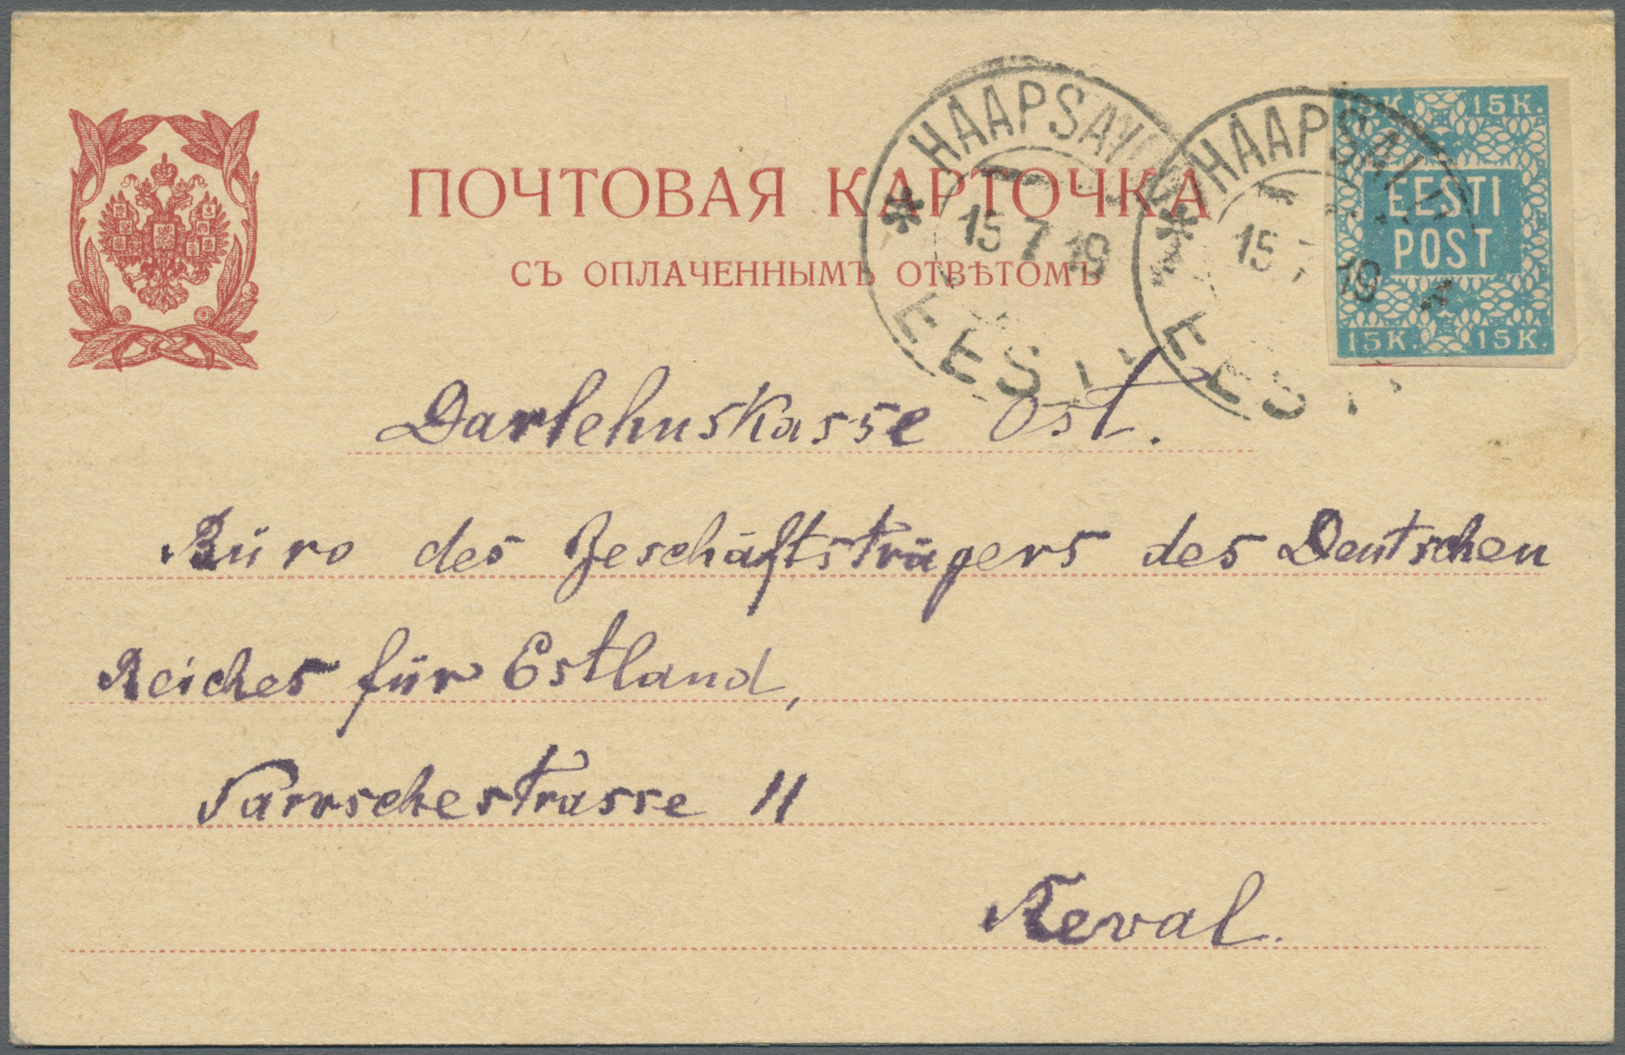 ПОЧТОВАЯ КАРТОЧКА
СЪ ОПЛАЧЕННЫМЪ ОТВѢТОМЪ
HAAPSALU
15 7 19
EESTI
HAAPSALU
15 7 19
EESTI
15K. 15K.
EESTI
POST
15K. 15K.
Darlehnskasse Ost.
Büro des Geschäftsträgers des Deutschen
Reiches für Estland,
Narvschestrasse 11
Reval.